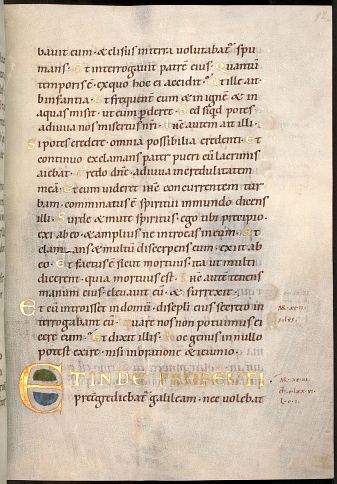 bavit eum · & elisus in terra volutabat͛ spu
mans · Et interrogavit patrē eius · Quantū
temporis ē · ex quo hoc ei accidit · At ille ait ·
b infantia · Et frequent̄ eum & in ignē & in
aquas misit · ut eum p̄deret · Sed siqd potes ·
adiuva nos misertus nr̄i · Ih̄c autem ait illi ·
Si potes credere · omnia possibilia credenti · Et
continuo exclamans pater pueri cū lacrimis
aiebat · Credo dn̄e · adiuva incredulitatem
meā · Et cum videret ih̄c concurrentem tur
bam · comminatus ē spiritui inmundo dicens
illi · Surde & mute spiritus · ego tibi p̄cipio ·
exi ab eo · & amplius ne introeas in eum · Et
clamans & multū discerpens eum · exiit ab
eo · Et factus ē sicut mortuus · ita ut multi
dicerent · quia mortuus est · Ih̄c aut̄ tenens
manum eius · elevavit eū · & surrexit ·
Et cū introisset in domū · discipli eius secreto in
terrogabant eū · Quare nos non potuimus ei
cere eum · Et dixit illis · Hoc genus in nullo
potest exire · nisi in oratione & ieiunio ·
ET INDE PROFECTI ·
p̄t̄grediebant͛ galileam · nec volebat